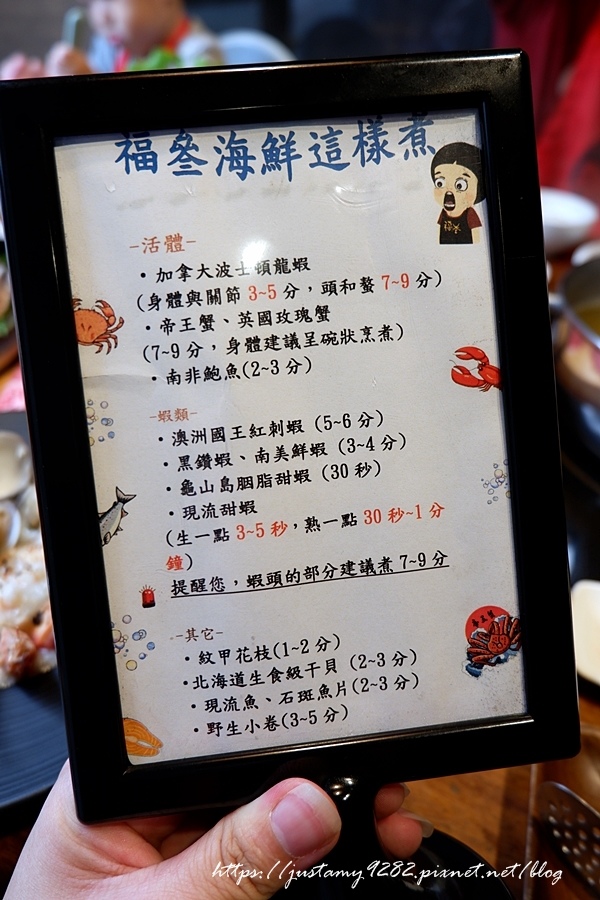 福叄海鮮這樣煮
-活體-
・加拿大波士頓龍蝦
(身體與關節 3~5 分，頭和螯 7~9 分)
・帝王蟹、英國玫瑰蟹
(7~9 分，身體建議呈碗狀烹煮)
・南非鮑魚(2~3 分)
-蝦類-
・澳洲國王紅刺蝦 (5~6 分)
・黑鑽蝦、南美鮮蝦 (3~4 分)
・龜山島胭脂甜蝦 (30 秒)
・現流甜蝦
(生一點 3~5 秒，熟一點 30 秒~1 分
鐘)
提醒您，蝦頭的部分建議煮 7~9 分
-其它-
・紋甲花枝(1~2 分)
・北海道生食級干貝 (2~3 分)
・現流魚、石斑魚片(2~3 分)
・野生小卷(3~5 分)
https://justamy9282.pixnet.net/blog